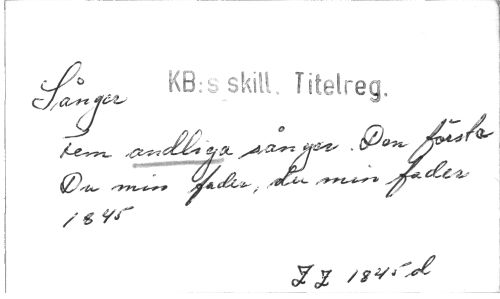 KB:s skill. Titelreg.
Sånger
Fem andliga sånger. Den första
Du min fader, du min fader
1845
ZZ 1845 d